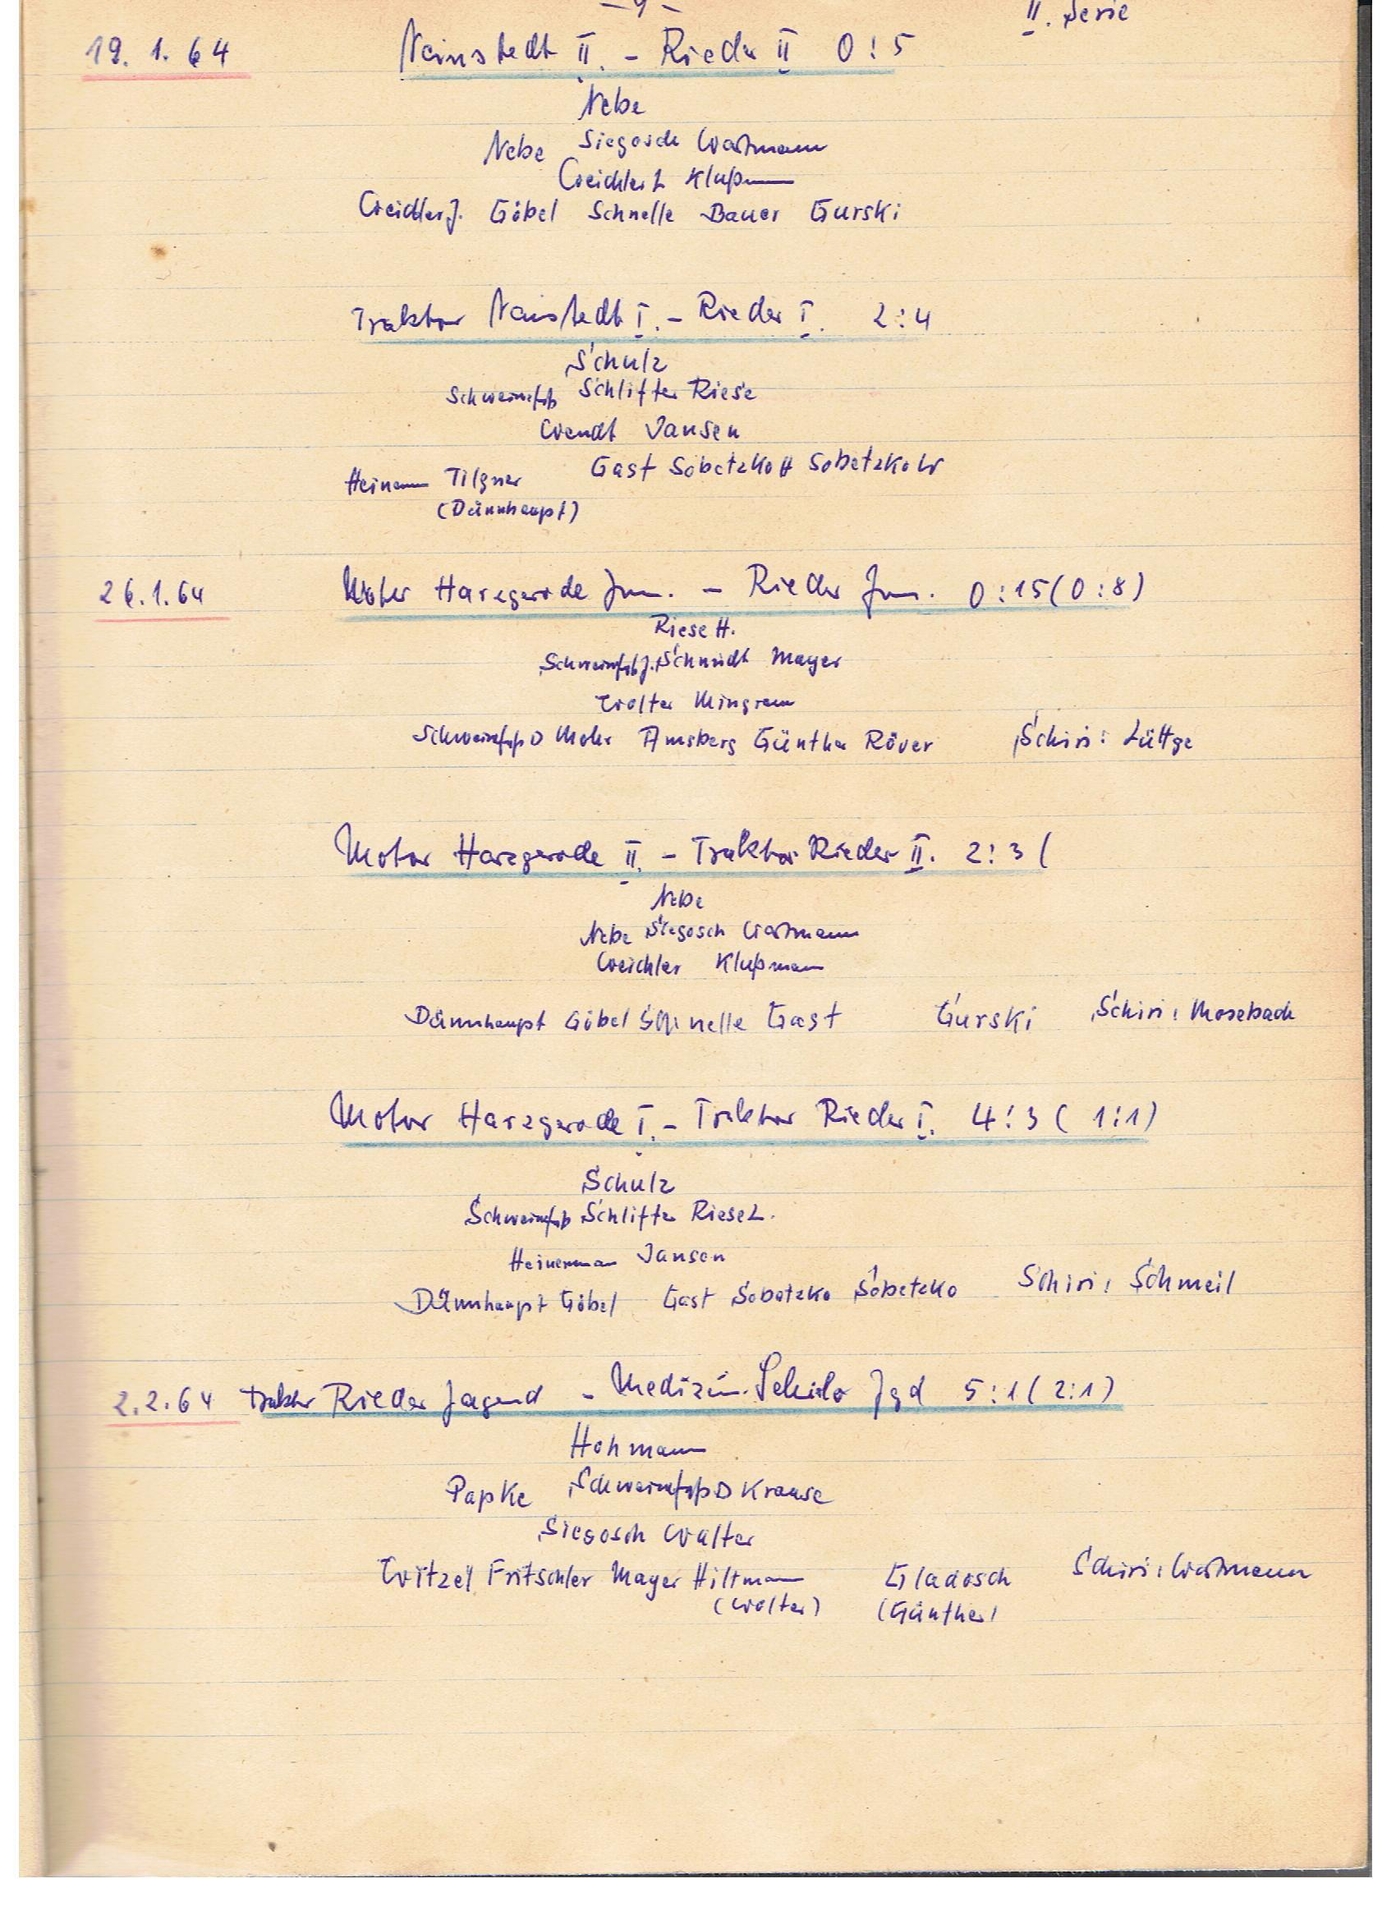 - 9 -
II. Serie
19. 1. 64 Neinstedt II. - Rieder II 0 : 5
Nebe
Nebe Siegosch Wartmann
Weichler L Klußmann
Weichler J. Göbel Schnelle Bauer Gurski
Traktor Neinstedt I. - Rieder I. 2 : 4
Schulz
Schlifter Riese
Wendt Jansen
Heinemann Tilgner Gast Sobetzko H Sobetzko W
(Dannhaupt)
26.1.64 Motor Harzgerode Jun. - Rieder Jun. 0 : 15 (0 : 8)
Riese H.
Schmidt Mayer
Wolter Mingram
Mohr Amsberg Günther Röver Schiri : Lüttge
Motor Harzgerode II. - Traktor Rieder II. 2 : 3 (
Nebe
Nebe Siegosch Wartmann
Weichler Klußmann
Dannhaupt Göbel Schnelle Gast Gurski Schiri : Mosebach
Motor Harzgerode I. - Traktor Rieder I. 4 : 3 ( 1 : 1)
Schulz
Schlifter Riese L.
Heinemann Jansen
Dannhaupt Göbel Gast Sobetzko Sobetzko Schiri : Schmeil
2.2.64 Traktor Rieder Jugend - Medizin. Jgd 5 : 1 ( 2 : 1)
Hohmann
Papke Krause
Siegosch Walter
Witzel Fritschler Mayer Hiltmann Gladosch Schiri : Wartmann
(Wolter) (Günther)